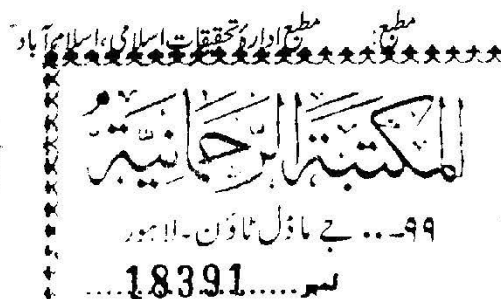 مطبع: مطبع ادارۂ تحقیقات اسلامی، اسلام آباد
المکتبۃ الرحمانیۃ
۹۹... جے ماڈل ٹاؤن۔ لاہور
نمبر.....18391.....